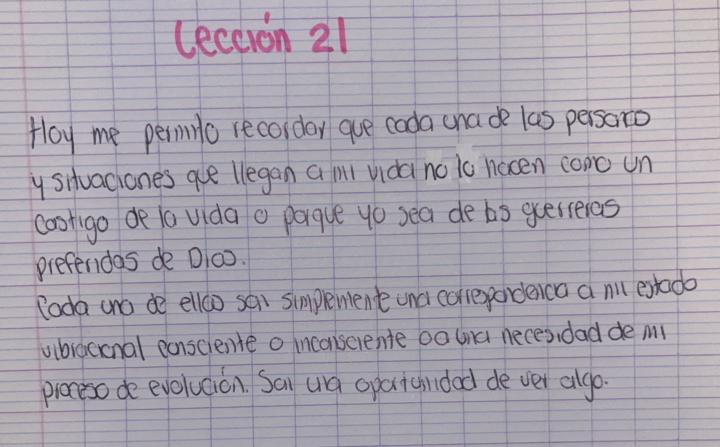 Lección 21
Hoy me permito recordar que cada una de las persona
y situaciones que llegan a mi vida no lo hacen como un
castigo de la vida o porque yo sea de las guerreras
preferidas de Dios.
Cada uno de ellos son simplemente una correspondencia a mi estado
vibracional consciente o inconsciente o a una necesidad de mi
proceso de evolución. Son una oportunidad de ver algo.